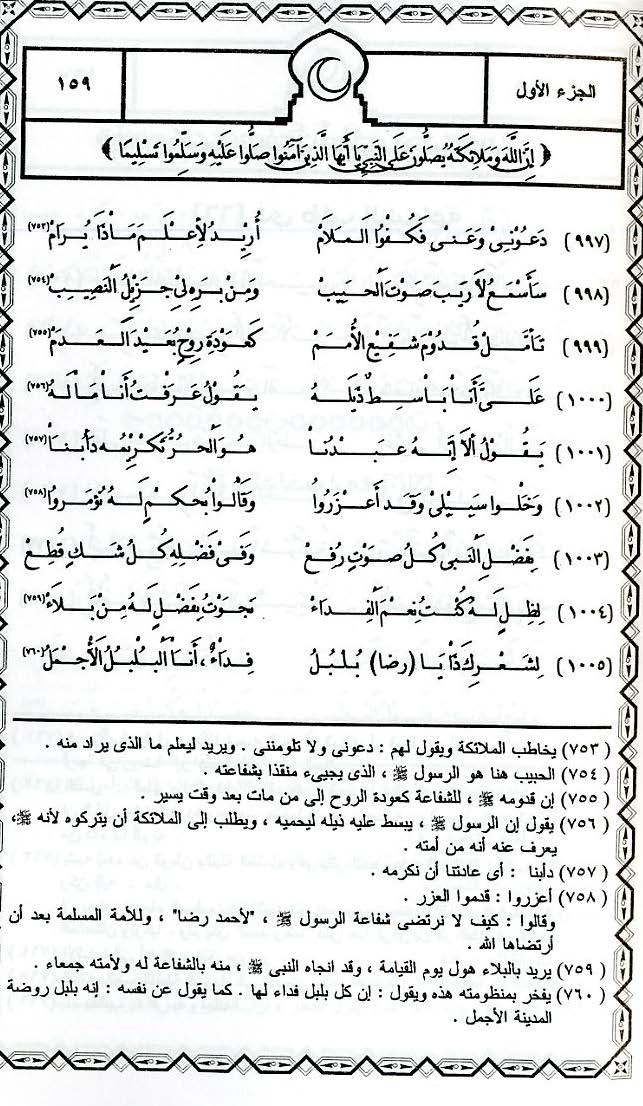 الجزء الأول
١٥٩
﴿ إِنَّ اللَّهَ وَمَلَائِكَتَهُ يُصَلُّونَ عَلَى النَّبِيِّ يَا أَيُّهَا الَّذِينَ آمَنُوا صَلُّوا عَلَيْهِ وَسَلِّمُوا تَسْلِيمًا ﴾
(٩٩٧) دَعُوْنِىْ وَعَنِّى فَكُفُّوا الْمَلَامْ أُرِيْدُ لِأَعْلَمَ مَاذَا يُرَامْ (٧٥٣)
(٩٩٨) سَأَسْمَعُ لَا رَيْبَ صَوْتَ الْحَبِيْبْ وَمِنْ بِرِهِ لِىْ جَزِيْلُ النَّصِيْبْ (٧٥٤)
(٩٩٩) تَأَمَّلْ قُدُوْمَ شَفِيْعِ الْأُمَمْ كَعَوْدَةِ رُوْحٍ بُعَيْدَ الْعَدَمْ (٧٥٥)
(١٠٠٠) عَلَىَّ أَتَى بَاسِطًا ذَيْلَهُ يَقُوْلُ عَرَفْتُ أَنَا مَالَهُ (٧٥٦)
(١٠٠١) يَقُوْلُ أَلَا إِنَّهُ عَبْدُنَا هُوَ الْحُرُّ تَكْرِيْمُهُ دَأْبُنَا (٧٥٧)
(١٠٠٢) وَخَلُّوا سَبِيْلِىْ وَقَدْ أَعْزَرُوا وَقَالُوا بِحُكْمٍ لَهُ نُؤْمَرُ (٧٥٨)
(١٠٠٣) بِفَضْلِ النَّبِىْ كُلُّ صَوْتٍ رُفِعْ وَفِىْ فَضْلِهِ كُلُّ شَكٍ قُطِعْ
(١٠٠٤) لِظِلٍ لَهُ كُنْتُ نِعْمَ الْفِدَاءْ نَجَوْتُ بِفَضْلٍ لَهُ مِنْ بَلَاءْ (٧٥٩)
(١٠٠٥) لِشِعْرِكَ ذَا يَا (رضا) بُلْبُلُ فِدَاءٌ، أَنَا الْبُلْبُلُ الْأَجْمَلُ (٧٦٠)
(٧٥٣) يخاطب الملائكة ويقول لهم : دعونى ولا تلومننى . ويريد ليعلم ما الذى يراد منه .
(٧٥٤) الحبيب هنا هو الرسول ﷺ ، الذى يجيىء منقذا بشفاعته .
(٧٥٥) إن قدومه ﷺ ، للشفاعة كعودة الروح إلى من مات بعد وقت يسير .
(٧٥٦) يقول إن الرسول ﷺ ، يبسط عليه ذيله ليحميه ، ويطلب إلى الملائكة أن يتركوه لأنه ﷺ،
يعرف عنه أنه من أمته .
(٧٥٧) دأبنا : أى عادتنا أن نكرمه .
(٧٥٨) أعزروا : قدموا العزر .
وقالوا : كيف لا نرتضى شفاعة الرسول ﷺ ، "لأحمد رضا" ، وللأمة المسلمة بعد أن
أرتضاها الله .
(٧٥٩) يريد بالبلاء هول يوم القيامة ، وقد انجاه النبى ﷺ ، منه بالشفاعة له ولأمته جمعاء .
(٧٦٠) يفخر بمنظومته هذه ويقول : إن كل بلبل فداء لها . كما يقول عن نفسه : إنه بلبل روضة
المدينة الأجمل .